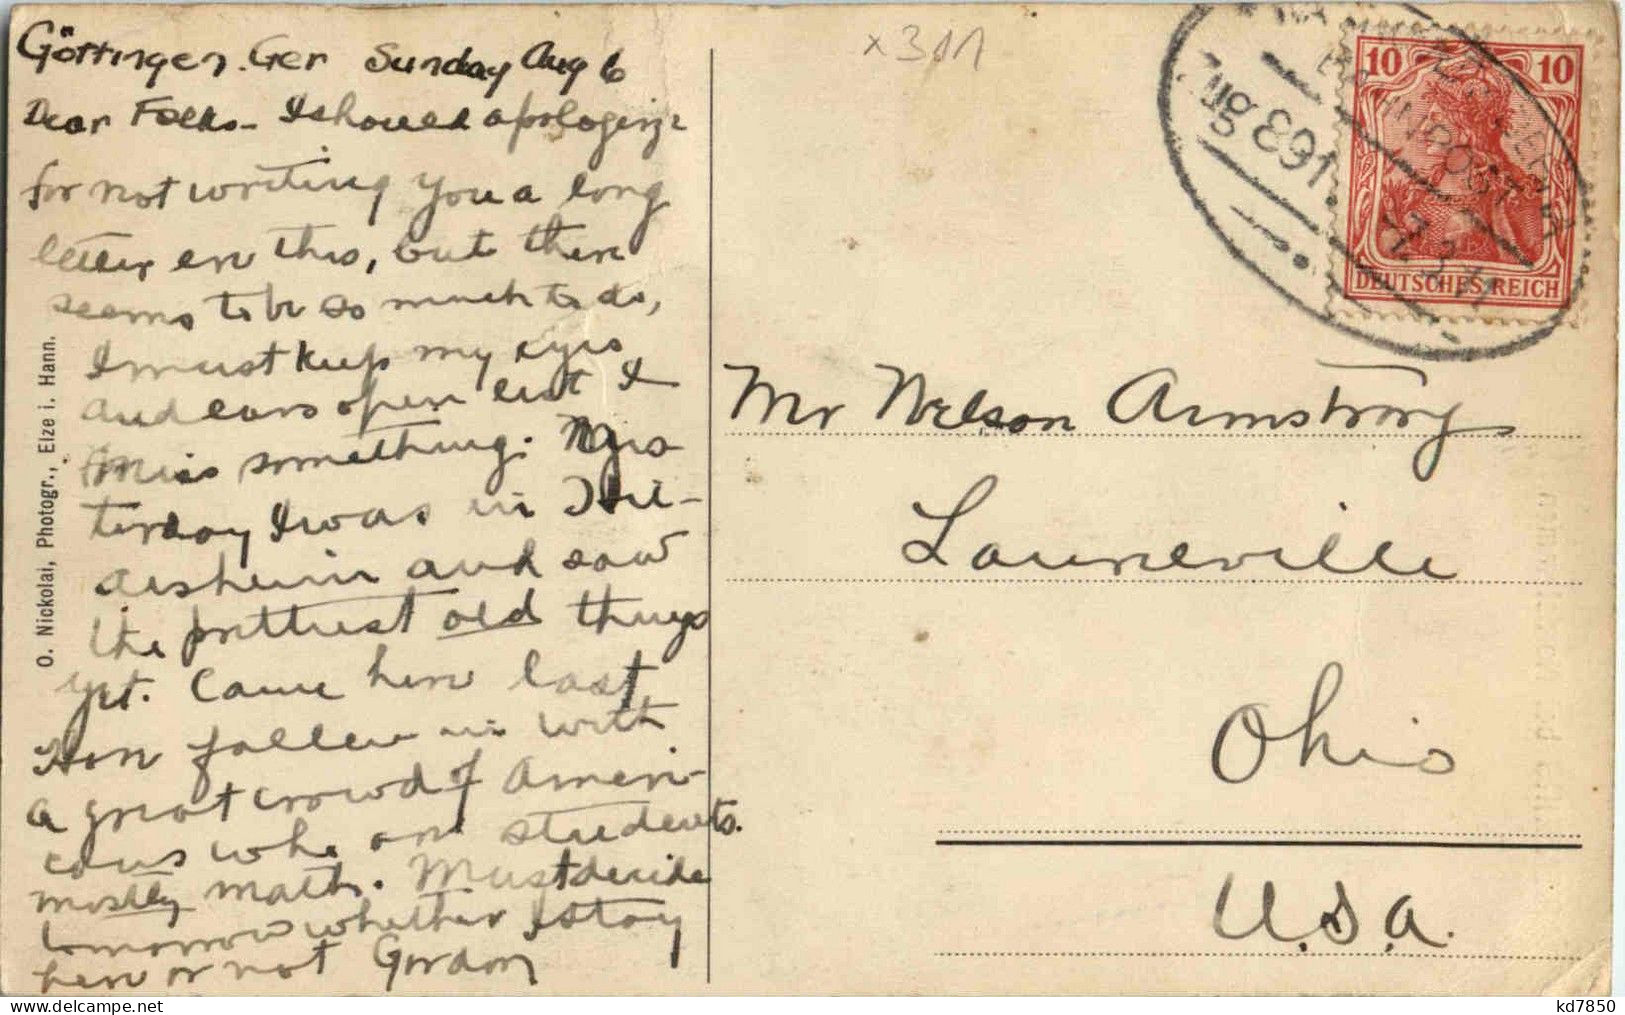 Göttingen. Ger Sunday Aug 6
Dear Folks - I should apologize
for not writing you a long
letter on this, but there
seems to be so much to do,
I must keep my eyes
and ears open lest I
miss something. Yes-
terday I was in Hil-
desheim and saw
the prettiest old things
yet. Came here last
 fallen in with
a great crowd of Ameri-
cans who are students.
mostly math. Must decide
tomorrow whether I stay
here or not Gordon
O. Nickolai, Photogr., Elze i. Hann.
x 311
10 10
DEUTSCHES REICH
BAHNPOST
Zug 891
Mr Nelson Armstrong
Launeville
Ohio
U.S.A.
kd7850